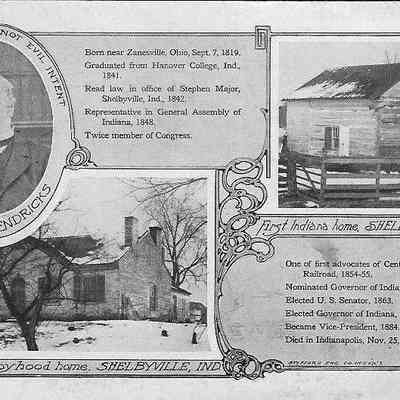 NOT EVIL INTENT
ENDRICKS
Born near Zanesville, Ohio, Sept. 7, 1819.
Graduated from Hanover College, Ind.,
1841.
Read law in office of Stephen Major,
Shelbyville, Ind., 1842.
Representative in General Assembly of
Indiana, 1848.
Twice member of Congress.
First Indiana home, SHEL
yhood home, SHELBYVILLE, IND
One of first advocates of Cen
Railroad, 1854-55.
Nominated Governor of India
Elected U. S. Senator, 1863.
Elected Governor of Indiana,
Became Vice-President, 1884.
Died in Indianapolis, Nov. 25,